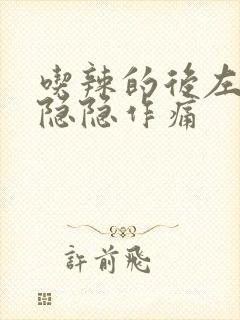 喫辣的後左
隐隐作痛
許前飛